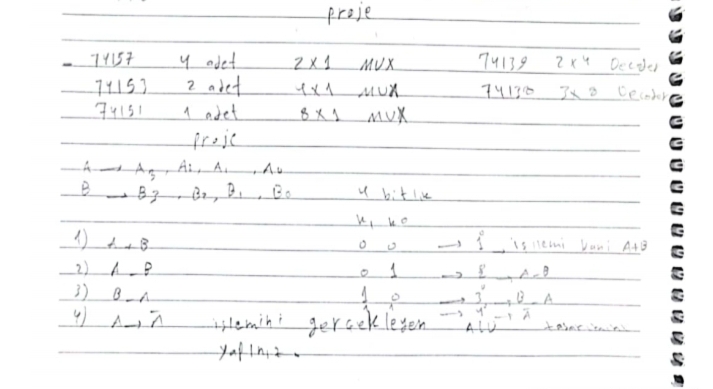 proje
- 74157 4 adet 2x1 MUX 74139 2x4 Decoder
74153 2 adet 4x1 MUX 74138 3x8 Decoder
74151 1 adet 8x1 MUX
proje
A → A3, A2, A1, A0
B → B3, B2, B1, B0 4 bitlik
k1 k0
1) A+B 0 0 → 1 işlemi yani A+B
2) A-B 0 1 → 2 → A-B
3) B-A 1 0 → 3 → B-A
4) A → Ā işlemini gerçekleyen ALU tasarımını → 4 → Ā
yapınız.